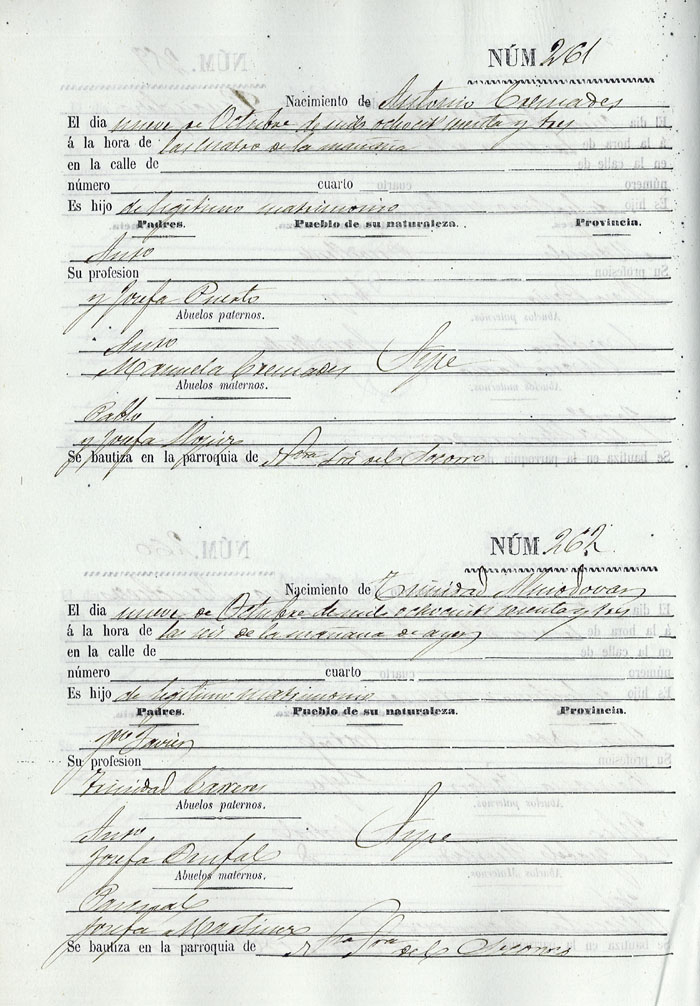 NÚM. 261
Nacimiento de Antonio Cremades
El dia nueve de Octubre de mil ochocts. y tres
á la hora de las cuatro de la mañana
en la calle de
número cuarto
Es hijo de legitimo matrimonio
Padres. Pueblo de su naturaleza. Provincia.
Anto
Su profesion
y Josefa Puerto
Abuelos paternos.
Anto
Manuela Cremades Aspe
Abuelos maternos.
Pablo
y Josefa
Se bautiza en la parroquia de Ntra Sra del Socorro
NÚM. 262
Nacimiento de Trinidad Almodovar
El dia nueve de Octubre de mil ochocts. y tres
á la hora de las seis de la mañana de ayer
en la calle de
número cuarto
Es hijo de legitimo matrimonio
Padres. Pueblo de su naturaleza. Provincia.
Javier
Su profesion
Trinidad
Abuelos paternos.
Anto Aspe
Josefa
Abuelos maternos.
Pascual
Josefa Martinez
Se bautiza en la parroquia de Ntra Sra del Socorro